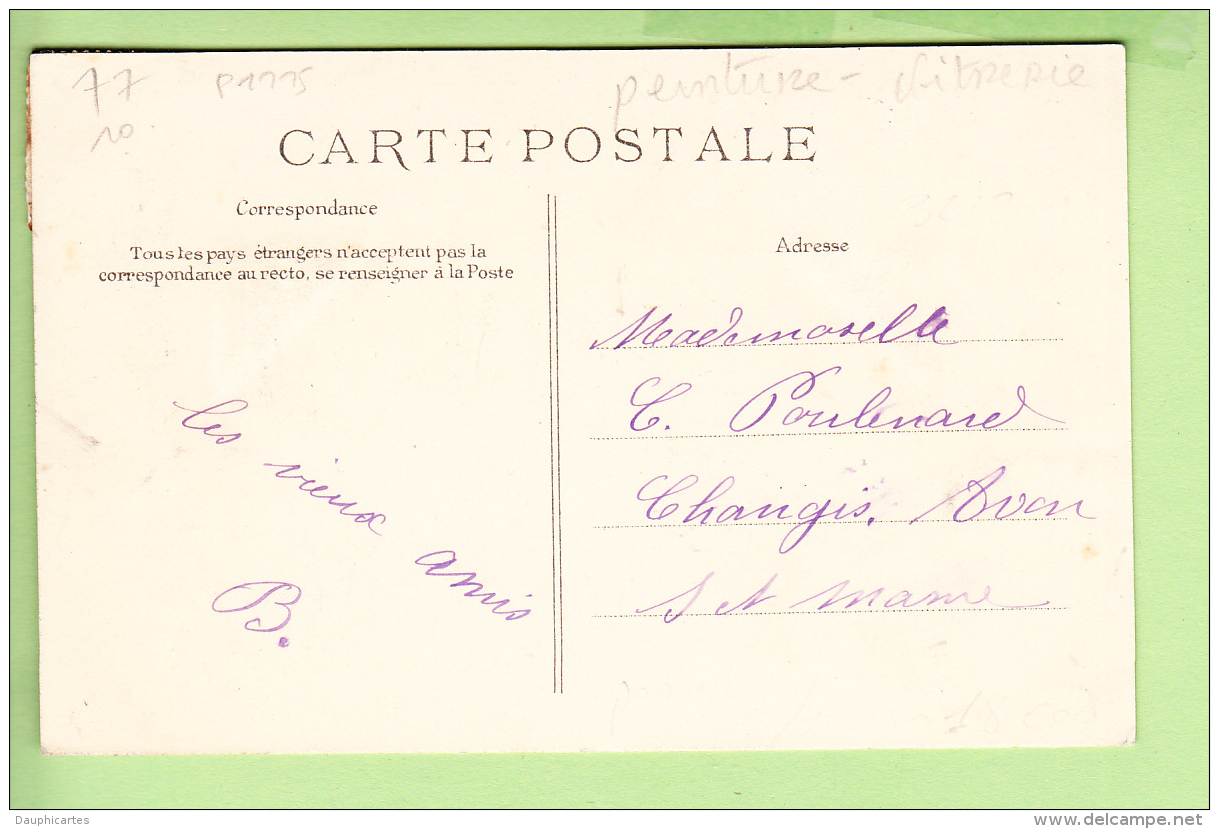 77 P1225 peinture - vitrerie
10
CARTE POSTALE
Correspondance
Tous les pays étrangers n'acceptent pas la
correspondance au recto, se renseigner à la Poste
les vieux amis
B.
Adresse
Mademoselle
C. Poulenard
Changis. Avon
S et Marne
Dauphicartes
www.delcampe.net